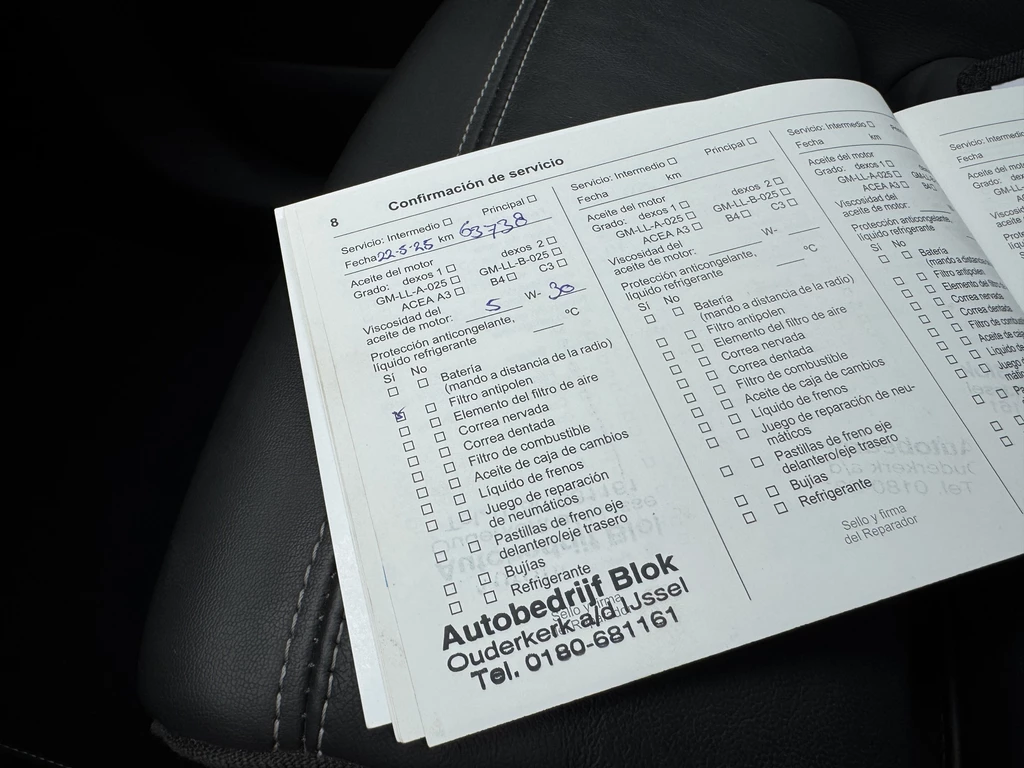 8
Confirmación de servicio
Servicio: Intermedio Principal
Fecha 22-5-25 km 63738
Aceite del motor
Grado: dexos 1 dexos 2
GM-LL-A-025 GM-LL-B-025
ACEA A3 B4 C3
Viscosidad del
aceite de motor: 5 W- 30
Protección anticongelante,
líquido refrigerante °C
Sí No
Batería
(mando a distancia de la radio)
Filtro antipolen
Elemento del filtro de aire
Correa nervada
Correa dentada
Filtro de combustible
Aceite de caja de cambios
Líquido de frenos
Juego de reparación
de neumáticos
Pastillas de freno eje
delantero/eje trasero
Bujías
Refrigerante
Sello y firma
Autobedrijf Blok
Ouderkerk a/d IJssel
Tel. 0180-681161
Servicio: Intermedio Principal
Fecha km
Aceite del motor
Grado: dexos 1 dexos 2
GM-LL-A-025 GM-LL-B-025
ACEA A3 B4 C3
Viscosidad del
aceite de motor: W-
Protección anticongelante,
líquido refrigerante °C
Sí No
Batería
(mando a distancia de la radio)
Filtro antipolen
Elemento del filtro de aire
Correa nervada
Correa dentada
Filtro de combustible
Aceite de caja de cambios
Líquido de frenos
Juego de reparación de neu-
máticos
Pastillas de freno eje
delantero/eje trasero
Bujías
Refrigerante
Sello y firma
del Reparador
Servicio: Intermedio
Fecha km
Aceite del motor
Grado: dexos 1
GM-LL-A-025
ACEA A3 B4
Viscosidad del
aceite de motor:
Protección anticongelante,
líquido refrigerante
Sí No
Batería
(mando a distancia
Filtro antipolen
Elemento del
Correa nervada
Correa dentada
Líquido de
Juego
Servicio: Intermedio
Fecha
Aceite del motor
Grado: dexos 1
GM-LL-A-025
ACEA A3
Viscosidad del
aceite de motor:
líquido refrigerante
Sí No